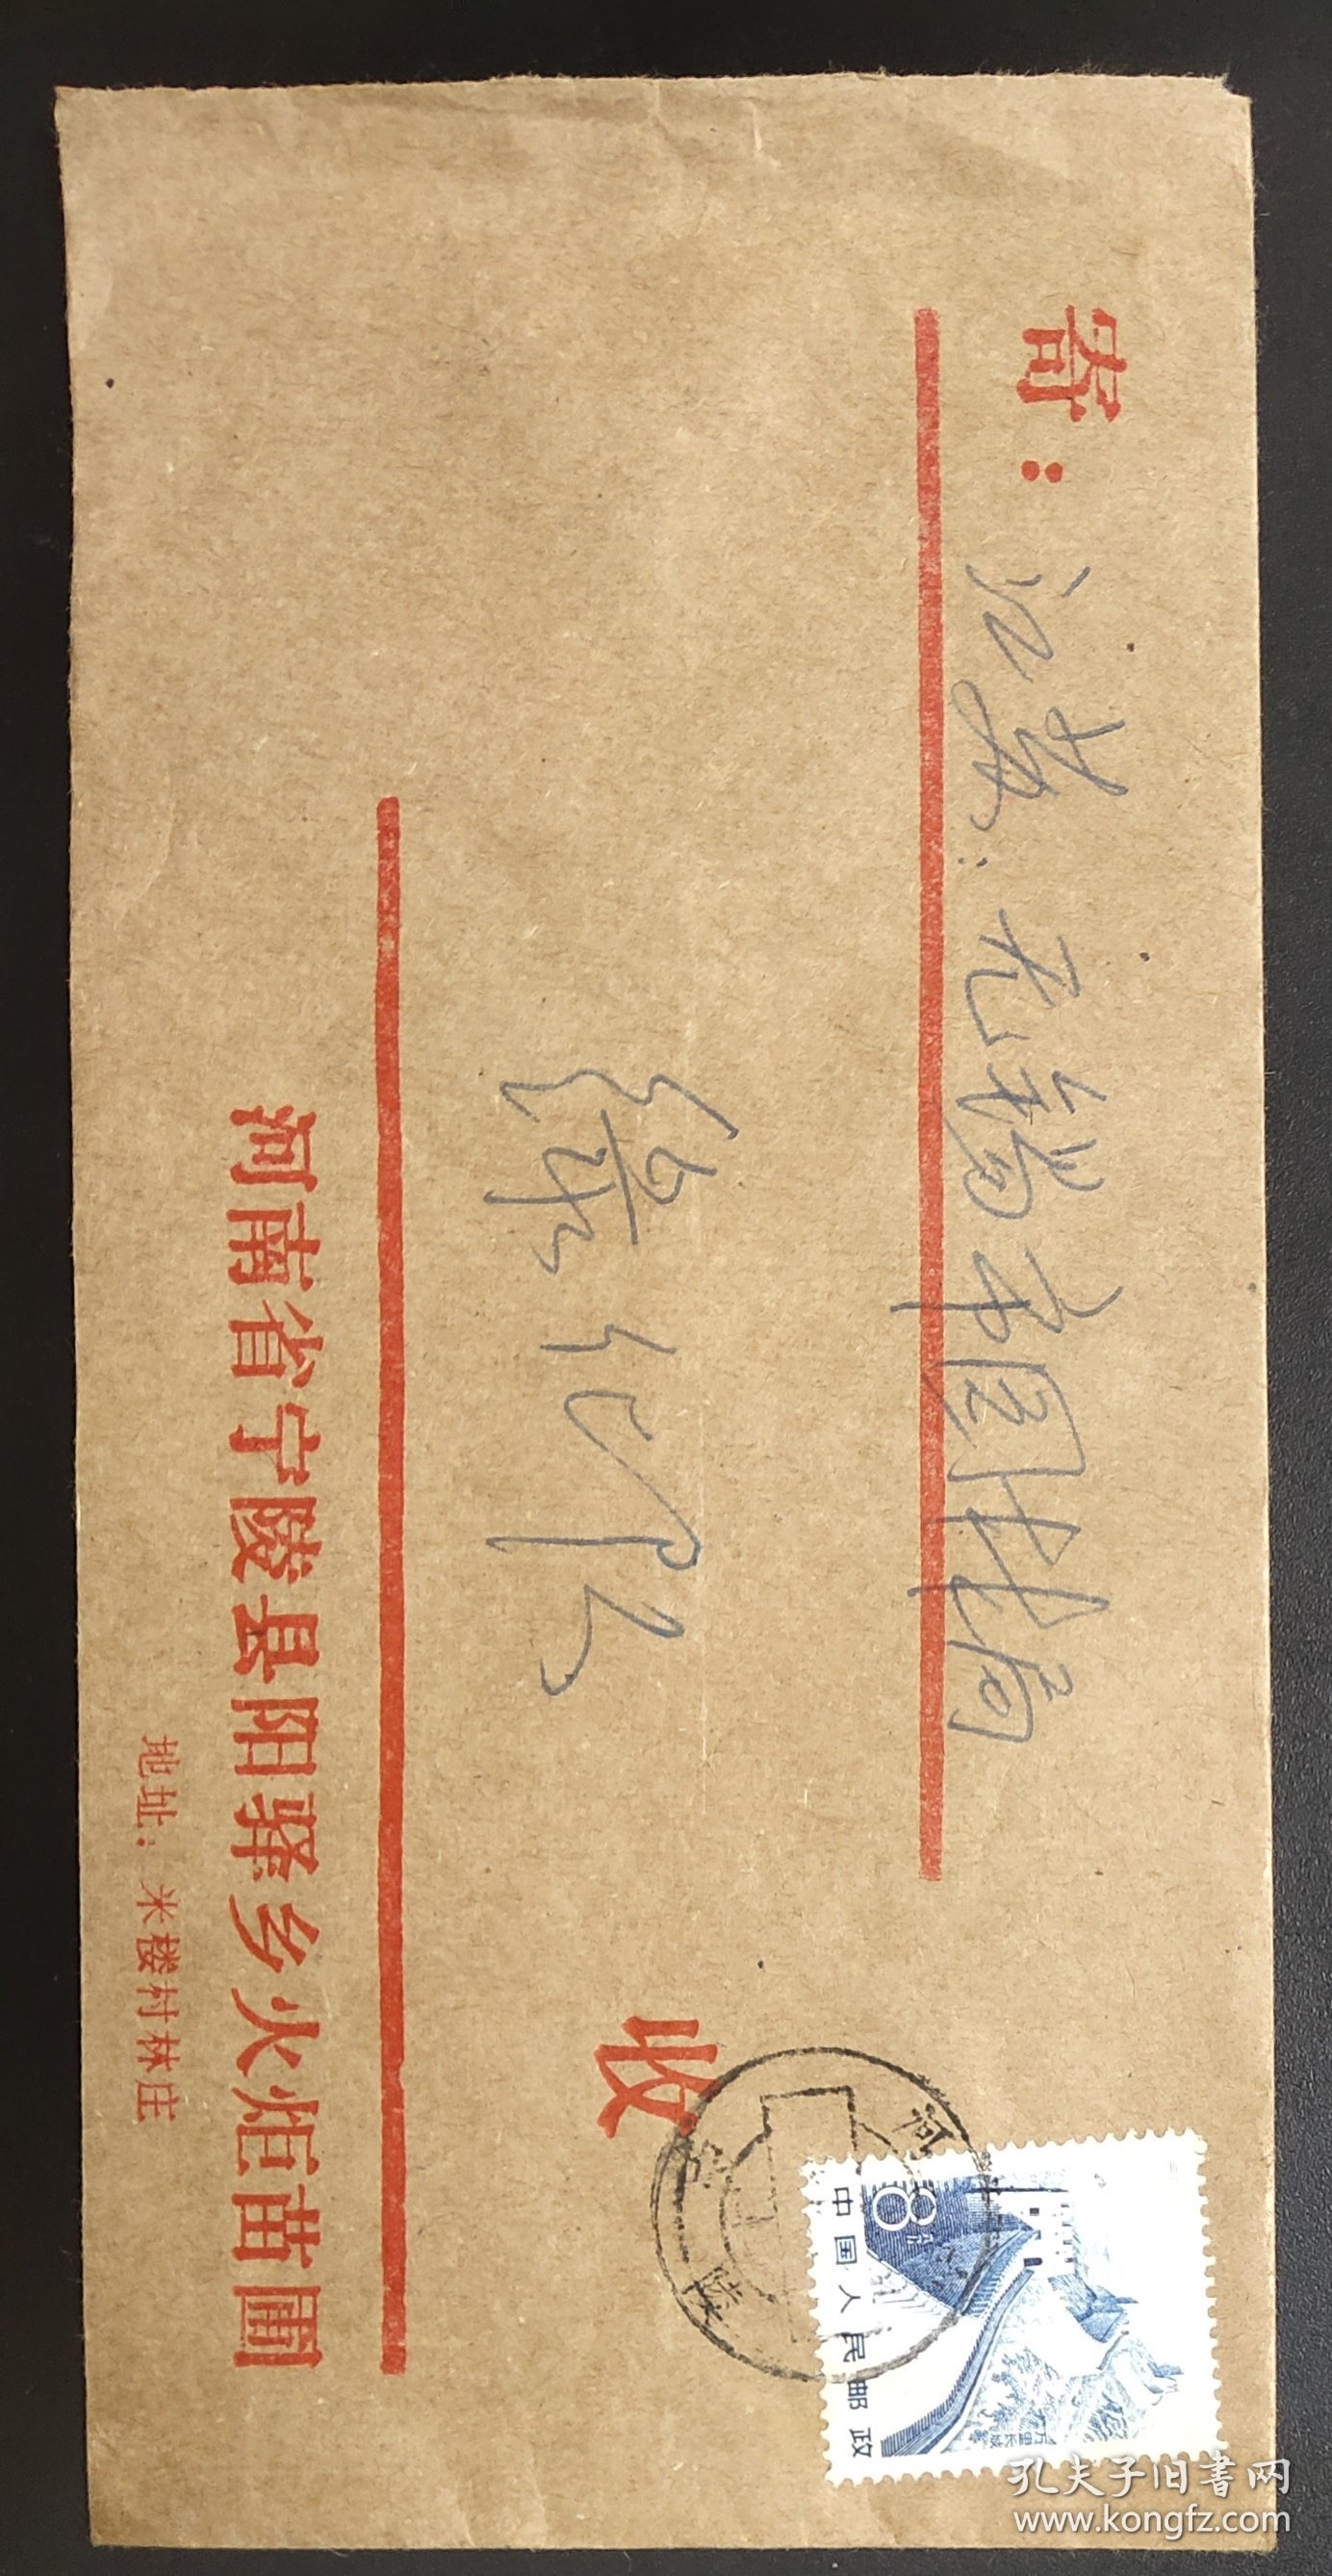 寄：
江苏：无锡市园林局
收
河南省宁陵县阳驿乡火炬苗圃
地址：米楼村林庄
河
宁陵
8分
中国人民邮政
万里长城
孔夫子旧书网
www.kongfz.com